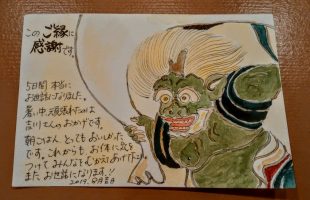 このご縁に
感謝です。
5日間 本当に
お世話になりました。
暑い中頑張れたのは
吉川さんのおかげです。
朝ごはん とってもおいしかった
です。これからも お体に気を
つけて みんなをむかえあげて下さい
また、お世話になります!!
2019.